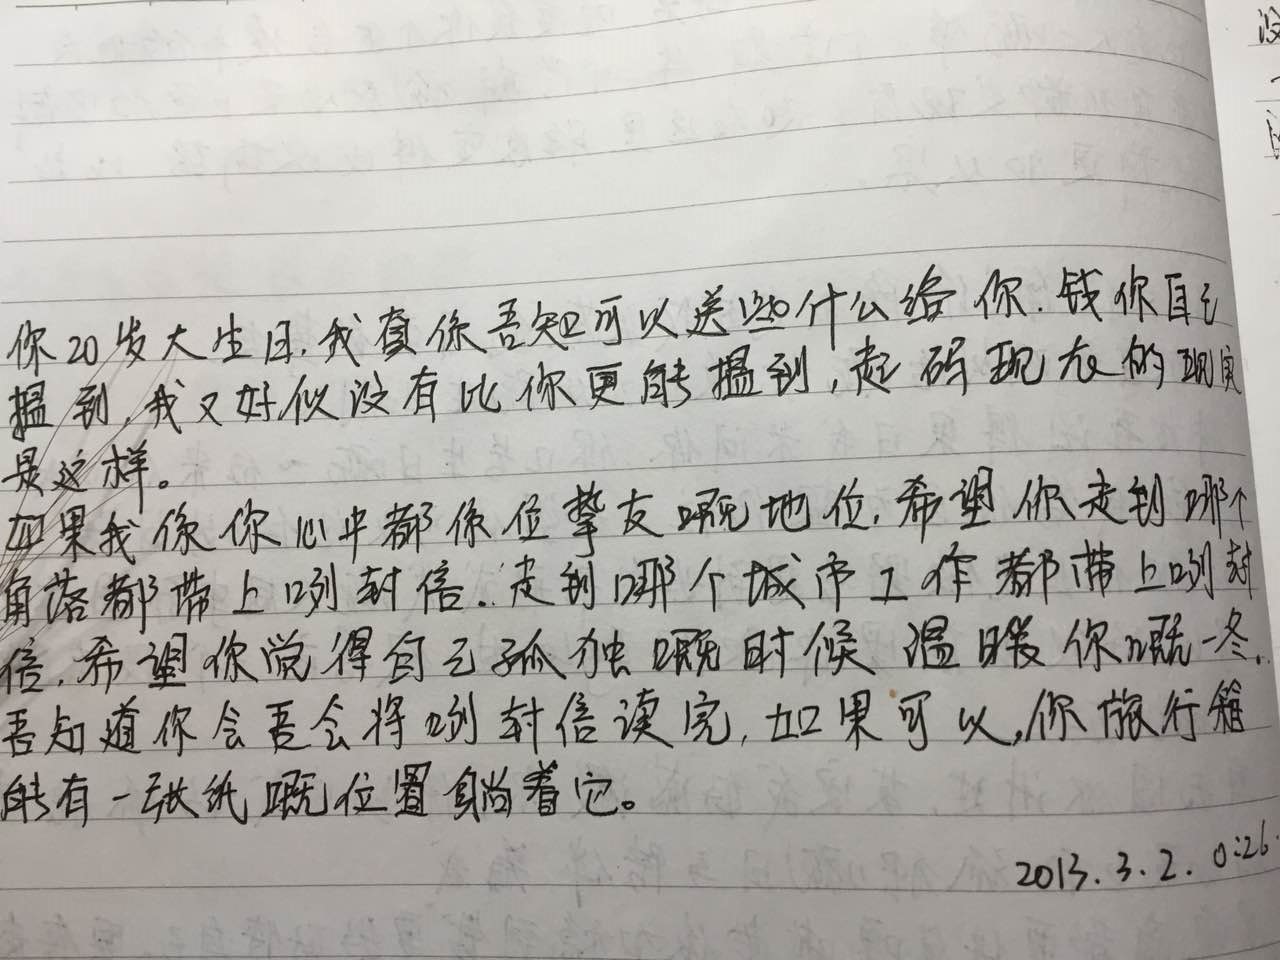 你20岁大生日.我真係吾知可以送些什么给你.钱你自己
揾到,我又好似没有比你更能揾到,起码现在的现实
是这样。
如果我係你心中都係位挚友嘅地位.希望你走到哪个
角落都带上呢封信.走到哪个城市工作都带上呢封
信.希望你觉得自己孤独嘅时候温暖你嘅一冬.
吾知道你会吾会将呢封信读完,如果可以,你旅行箱
能有一张纸嘅位置躺着它。
2013.3.2. 0:26.
没
一